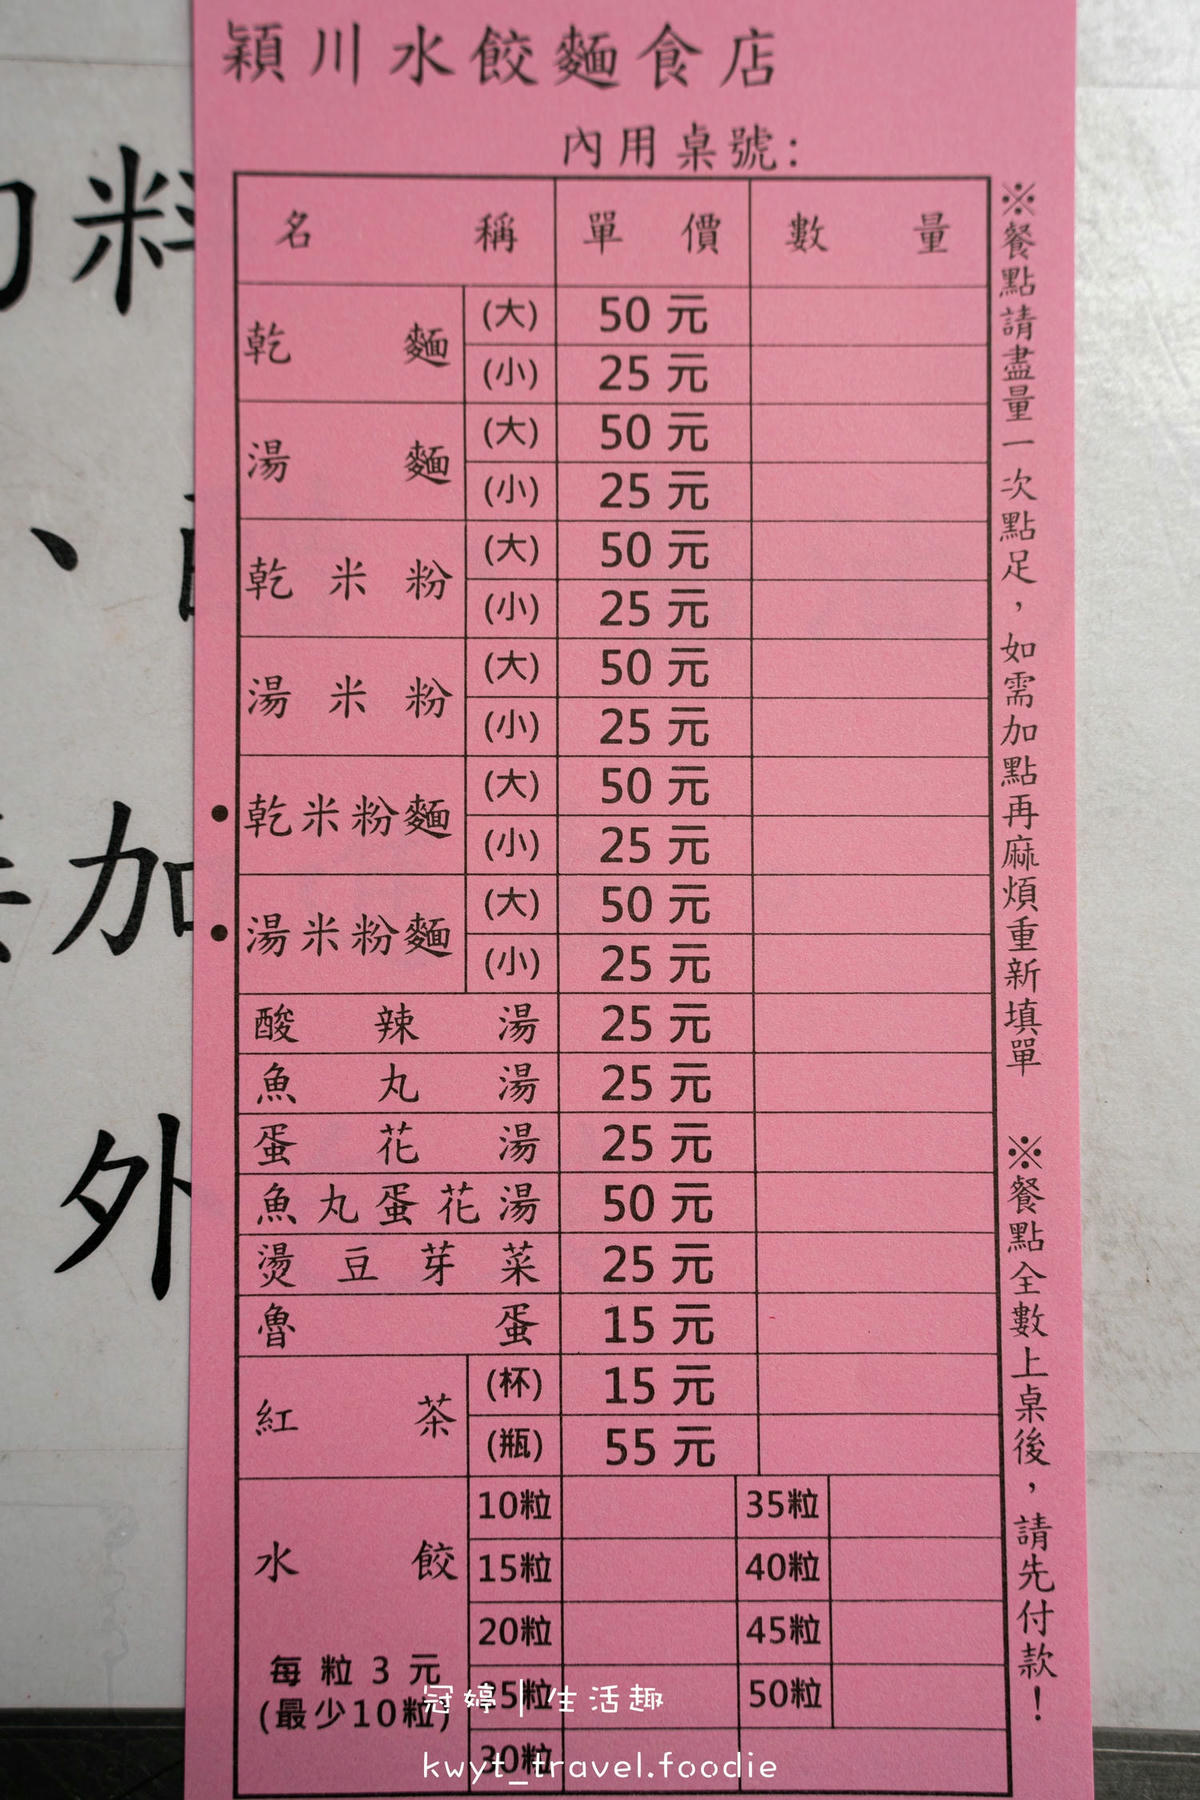 穎川水餃麵食店
內用桌號:
名稱 單價 數量
乾麵 (大) 50元
(小) 25元
湯麵 (大) 50元
(小) 25元
乾米粉 (大) 50元
(小) 25元
湯米粉 (大) 50元
(小) 25元
•乾米粉麵 (大) 50元
(小) 25元
•湯米粉麵 (大) 50元
(小) 25元
酸辣湯 25元
魚丸湯 25元
蛋花湯 25元
魚丸蛋花湯 50元
燙豆芽菜 25元
魯蛋 15元
紅茶 (杯) 15元
(瓶) 55元
水餃
每粒3元
(最少10粒)
10粒 35粒
15粒 40粒
20粒 45粒
25粒 50粒
30粒
※餐點請盡量一次點足，如需加點再麻煩重新填單
※餐點全數上桌後，請先付款！
料
、
加
外
冠婷|生活趣
kwyt_travel.foodie